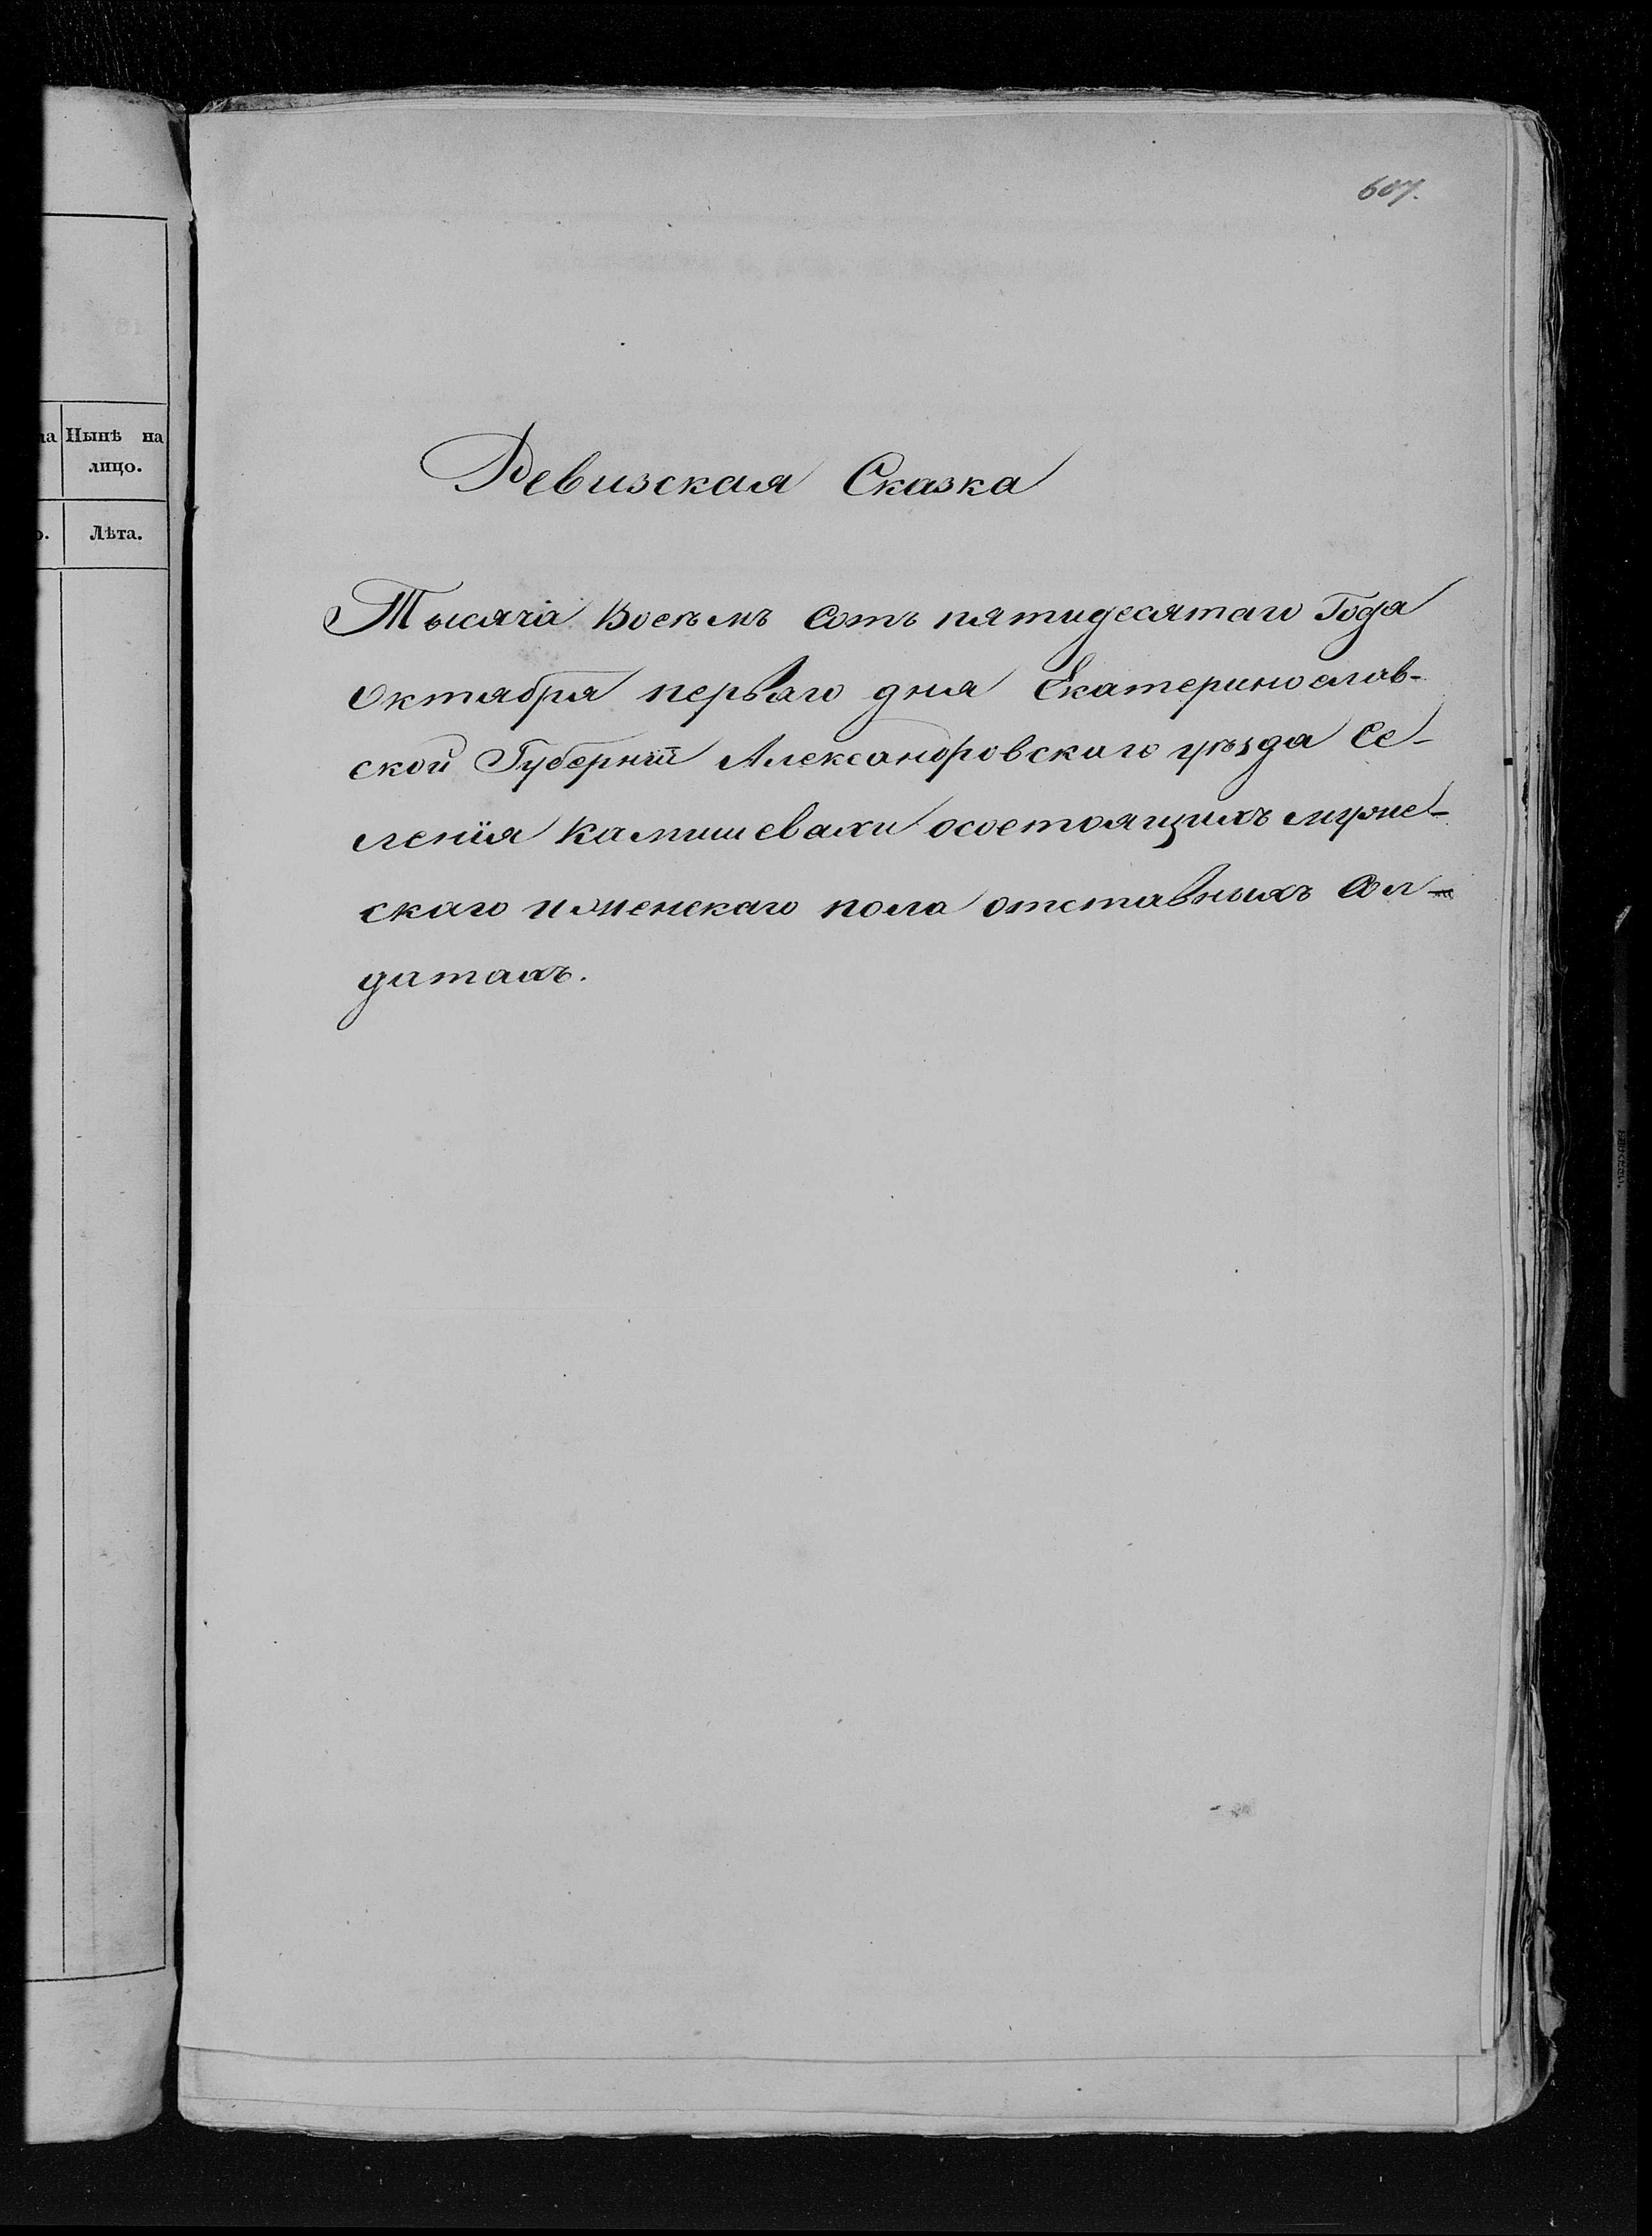 607.
на Нынѣ на
лицо.
Лѣта.
Ревизская Сказка
Тысяча Восемь Сотъ пятидесятаго Года
Октября перваго дня Екатеринослав-
ской Губерніи Александровскаго уѣзда Се-
ленія Камишевахи осостоящихъ мужес-
скаго и женскаго пола отставныхъ Сол-
датахъ.